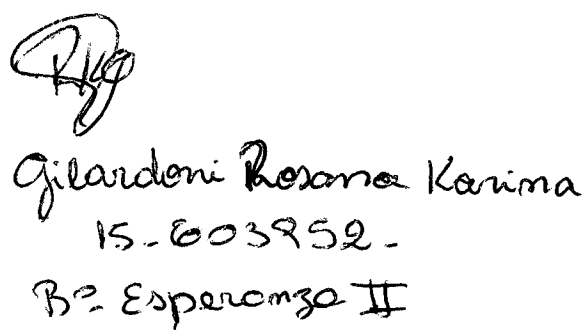 RKG
Gilardoni Rosana Karina
15-603952-
Bº Esperanza II